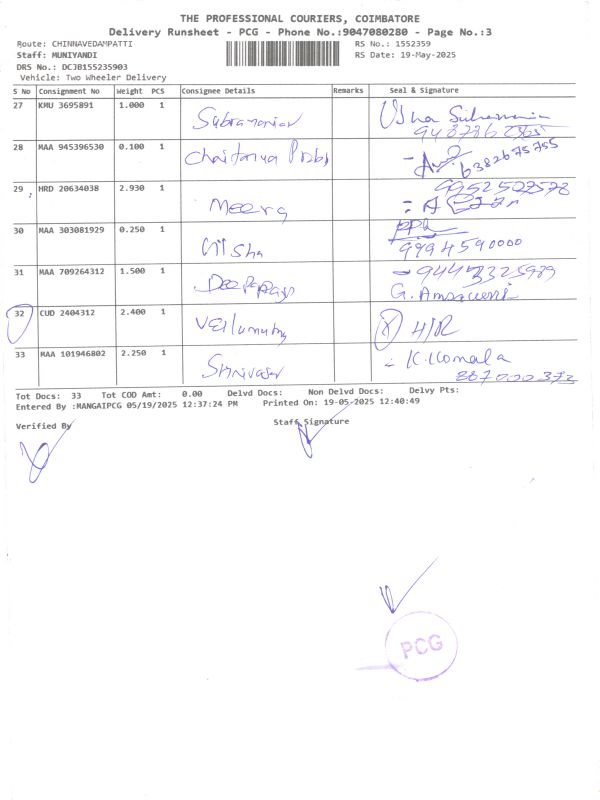 THE PROFESSIONAL COURIERS, COIMBATORE
Delivery Runsheet - PCG - Phone No.:9047080280 - Page No.:3
Route: CHINNAVEDAMPATTI RS No.: 1552359
Staff: MUNIYANDI RS Date: 19-May-2025
DRS No.: DCJB155235903
Vehicle: Two Wheeler Delivery
S No Consignment No Weight PCS Consignee Details Remarks Seal & Signature
27 KMU 3695891 1.000 1 Subramanian Usha
28 MAA 945396530 0.100 1 Chaitanya 6382675755
29 HRD 20634038 2.930 1 Meera 9952507578
30 MAA 303081929 0.250 1 Nisha 9994590000
31 MAA 709264312 1.500 1
G.
32 CUD 2404312 2.400 1 H/R
33 MAA 101946802 2.250 1 Srinivasan K. Komala
Tot Docs: 33 Tot COD Amt: 0.00 Delvd Docs: Non Delvd Docs: Delvy Pts:
Entered By :MANGAIPCG 05/19/2025 12:37:24 PM Printed On: 19-05-2025 12:40:49
Verified By Staff Signature
PCG